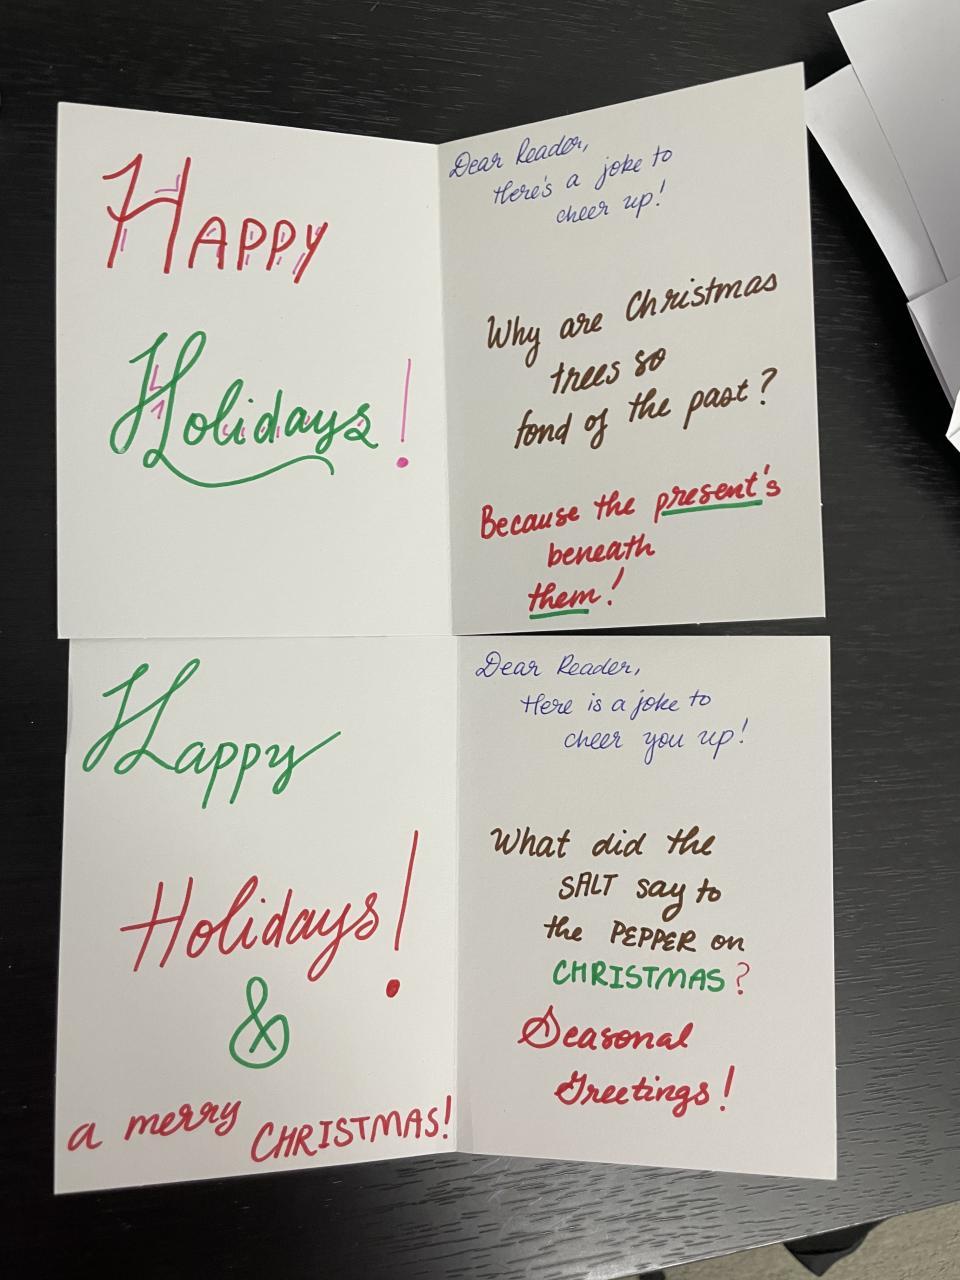 Happy
Holidays!
Dear Reader,
Here's a joke to
cheer up!
Why are Christmas
trees so
fond of the past?
Because the present's
beneath
them!
Happy
Holidays!
&
a merry CHRISTMAS!
Dear Reader,
Here is a joke to
cheer you up!
What did the
SALT say to
the PEPPER on
CHRISTMAS?
Seasonal
Greetings!